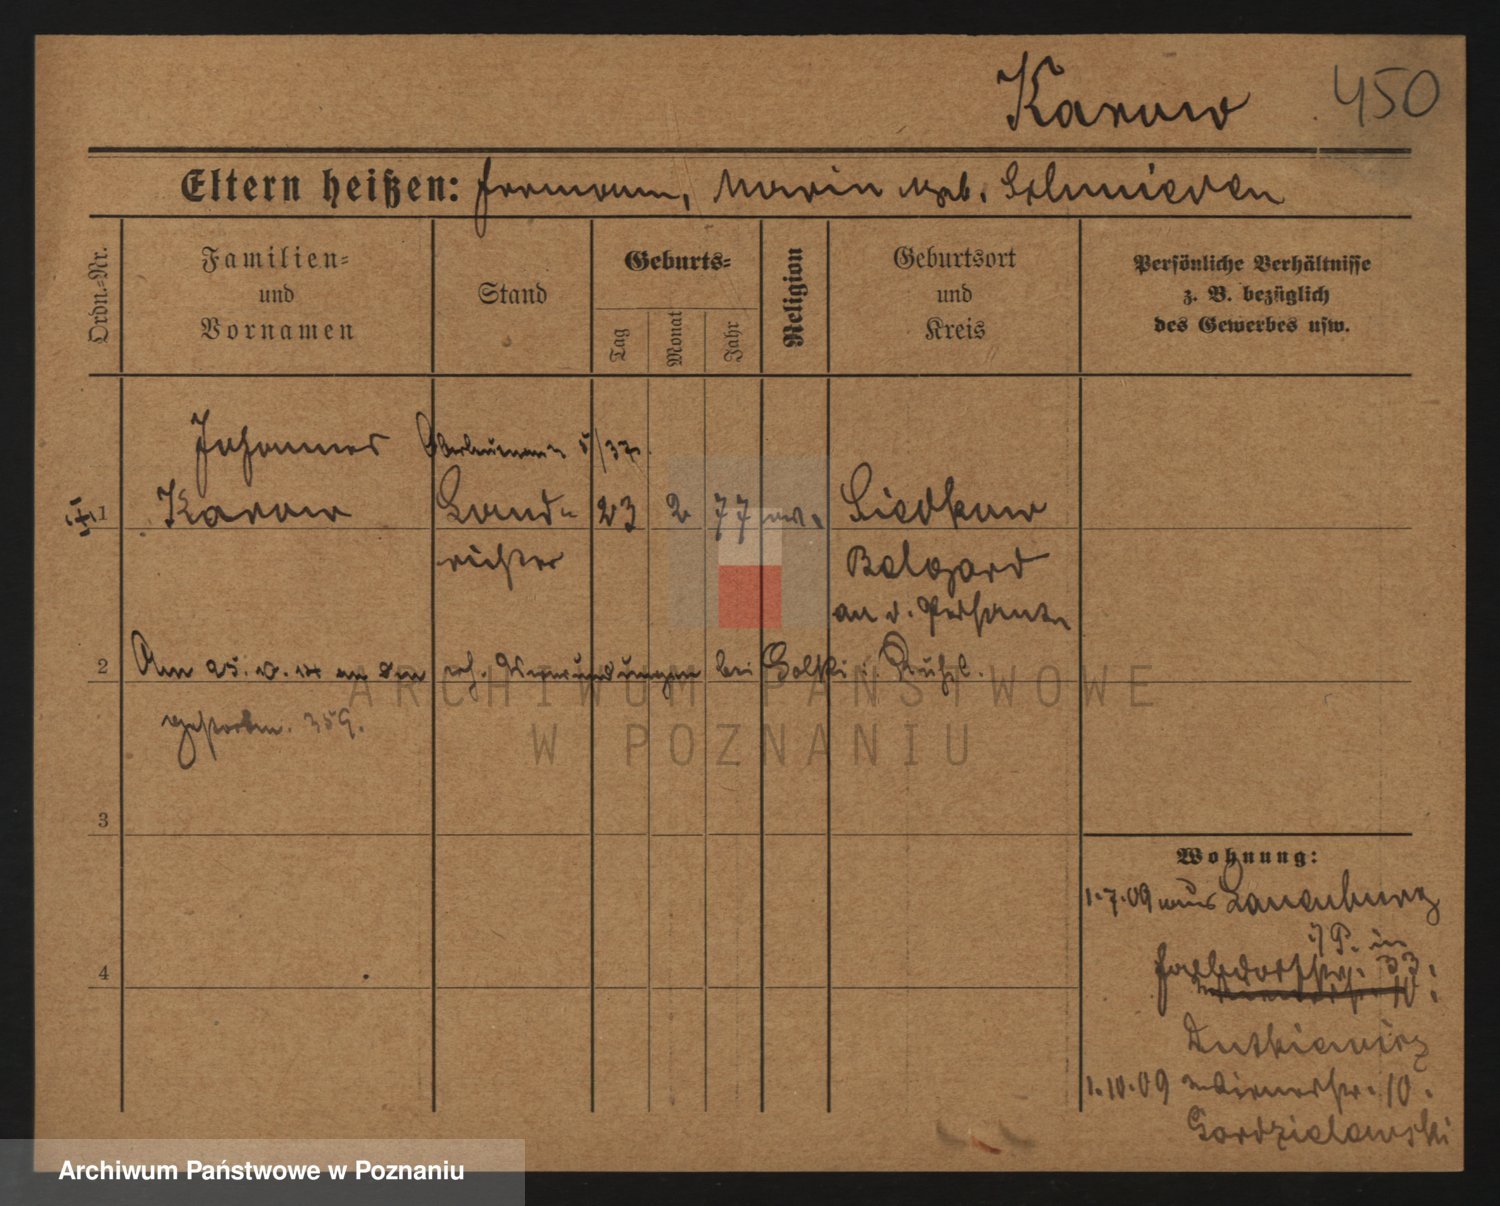 Karow 450
Eltern heißen: Hermann, Maria geb. Schmieden
Ordn.-Nr.
Familien-
und
Vornamen
Stand
Geburts-
Tag
Monat
Jahr
Religion
Geburtsort
und
Kreis
Persönliche Verhältnisse
z. B. bezüglich
des Gewerbes usw.
Johannes
1 Karow Land- 23 2 77 ev. Siedkow
richter Belgard
an d. Persante
2 Am 25. an den Verwundungen bei
gestorben. 359.
3
Wohnung:
1.7.09 aus Lauenburg
i/P. in
33.
4
10.
Dutkiewicz
1.10.09 10.
Gordzielewski
ARCHIWUM PAŃSTWOWE
W POZNANIU
Archiwum Państwowe w Poznaniu